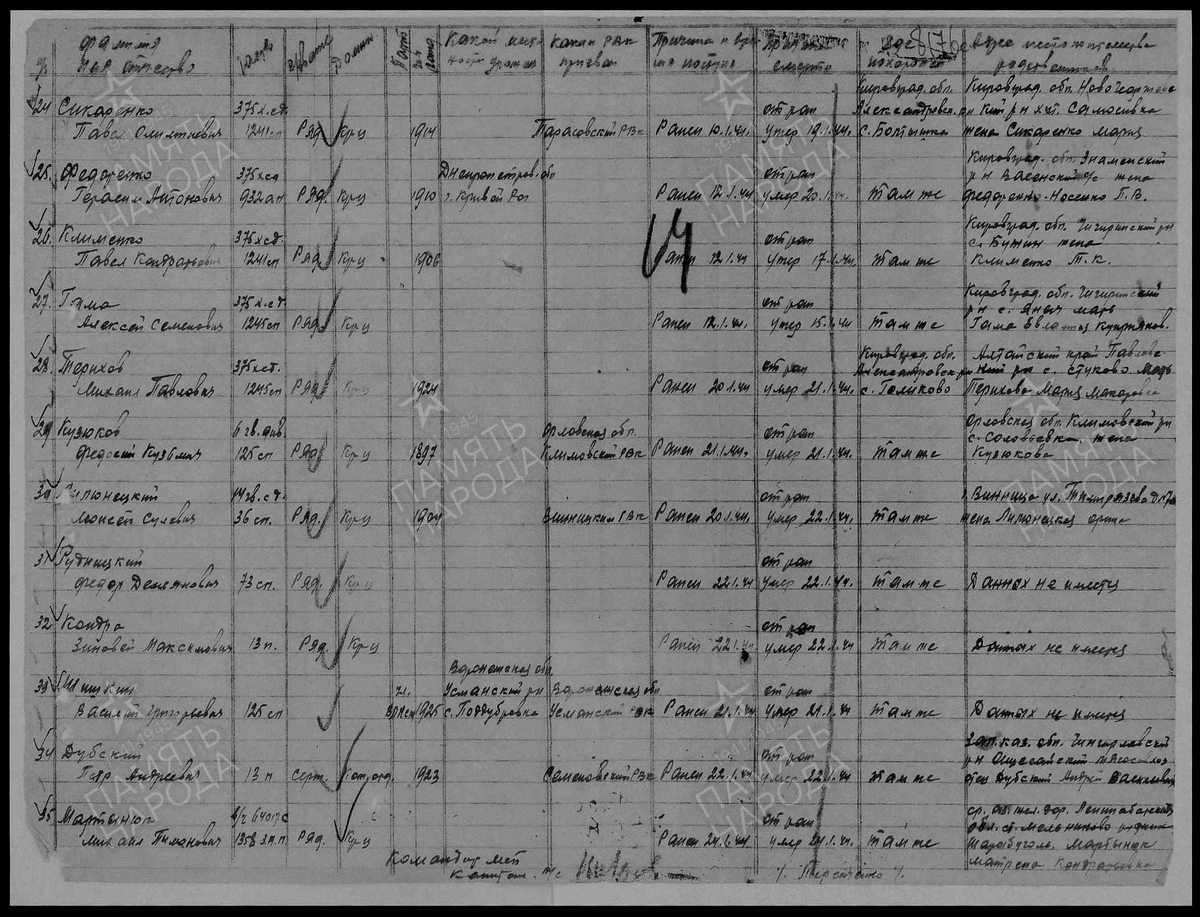 фамилия часть звание должн парт год рожд Какой мест Каким РВК Причина и вре Причина где 817 адрес местожительства
имя отчество ность урожен призван мя потери смерти похоронен родственников
Кировград. обл. Кировград. обл. Новогеоргиев
24 Сикаренко 375 х.сд. от ран Александровск. р-н кий рн хут. Самосивка
Павел 1241сп Ряд Кр-ц 1914 Тарасовский РВк Ранен 10.1.44. умер 19.1.44. с. Болтышка жена Сикаренко Мария
Кировград. обл. Знаменский
25. Федоренко 375хсд Днепропетров. обл от ран рн с/с жена
Герасим Антонович 932 сп Ряд. Кр-ц 1910 г. Кривой Рог Ранен 12.1.44. умер 20.1.44. там же Федоренко-Носенко П.В.
Кировград. обл. Чигиринский рн
26. Клименко 375хсд. от ран с. Бужин жена
Павел Кондратьевич 1241сп Ряд Кр-ц 1906 Ранен 12.1.44 умер 17.1.44. там же Клименко Т.К.
14
Кировград. обл. Чигиринский
27. Гама 375х.сд. от ран рн с. мать
Алексей Семенович 1245сп Ряд Кр-ц Ранен 12.1.44. умер 15.1.44 там же Гама
Кировград. обл. Алтайский край Павлов
28. Терихов 375хсд. от ран Александровск рн кий рн с. Стуково мать
Михаил Павлович 1245сп Ряд Кр-ц 1924 Ранен 20.1.44 умер 21.1.44. с. Голиково Терихова Мария Макаровна
Орловск обл. Климовский рн
29 Кузюков 6 гв. див. Орловская обл. от ран с. Соловьевка. жена
Федосий Кузьмич 125сп Ряд Кр-ц 1897 Климовский РВк Ранен 21.1.44. умер 21.1.44. там же Кузюкова
30 Липюнецкий 14гв.сд. от ран г. Винница ул. Тимирязева
Моисей 36 сп. Ряд. Кр-ц 1904 Винницким ГВк Ранен 20.1.44. умер 22.1.44. там же жена Липюнецкая
31 Рудницкий от ран
Федор Демьянович 73 сп. Ряд. Кр-ц Ранен 22.1.44 умер 22.1.44. там же Данных не имеется
32 Кондра от ран
Зиновей Максимович 13 п. Ряд. Кр-ц Ранен 22.1.44 умер 22.1.44 там же Данных не имеется
Воронежская обл.
33 Шишкин чл. Усманский рн Воронежская обл от ран
Василий Григорьевич 125 сп ВЛКСМ 1925 с. Поддубровка Усманский РВк Ранен 21.1.44. умер 21.1.44 там же Данных не имеется
Зап. каз. обл. Чингирлавский
34 Дубский от ран рн мясосовхоз
Петр Андреевич 13 п серж. Ком.отд. 1923 Семеновский РВк Ранен 22.1.44. умер 22.1.44 там же отец Дубский Андрей Васильевич
ср. аз. жел. дор. Ленинабадская
35 Мартынюк в/ч 64017с от ран обл. ст. Мельниково рудник
Михаил Тихонович 1358 з.п. Ряд. Кр-ц Ранен 24.1.44. умер 24.1.44. там же Мартынюк
Матрена Кондратьевна
Командир мсб
капитан м/с
ПАМЯТЬ НАРОДА
1941 1945